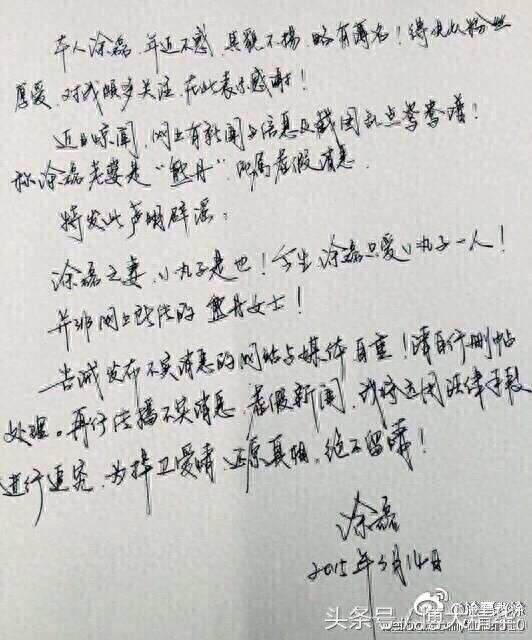 本人涂磊，年近不惑，其貌不扬，略有薄名！得见以粉丝
厚爱，对我颇多关注，在此表示感谢！
近日惊闻，网上有新闻与信息及截图乱点鸳鸯谱！
称涂磊老婆是“熊丹”，此属虚假消息。
特发此声明辟谣：
涂磊之妻，小丸子是也！今生涂磊只爱小丸子一人！
并非网上所传的熊丹女士！
告诫发布不实消息的网站与媒体自重！请自行删帖
处理。再行传播不实消息、虚假新闻，我将运用法律手段
进行追究，为捍卫爱情，还原真相，绝不留情！
涂磊
2015年3月14日
头条号/博大精华